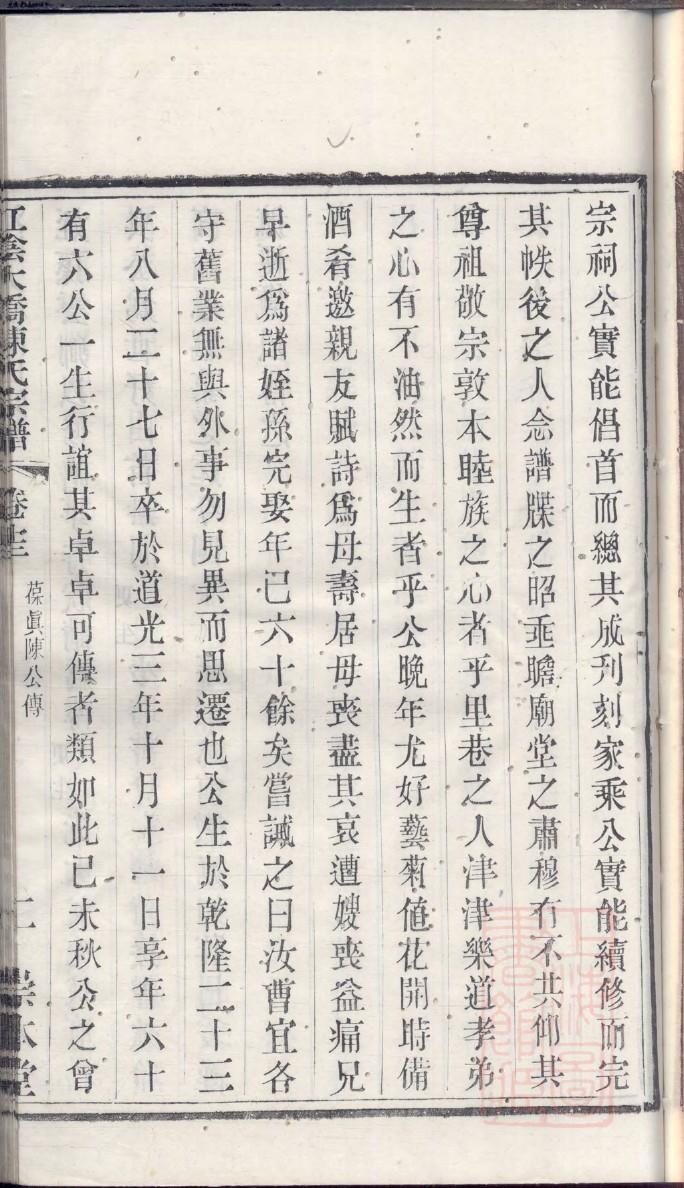 宗祠公實能倡首而總其成刋刻家乘公實能續修而完
其帙後之人念譜牒之昭垂瞻廟堂之肅穆有不共仰其
尊祖敬宗敦本睦族之心者乎里巷之人津津樂道孝弟
之心有不油然而生者乎公晚年尤好藝菊値花開時備
酒肴邀親友賦詩爲母壽居母喪盡其哀遭嫂喪益痛兄
早逝爲諸姪孫完娶年已六十餘矣嘗誡之曰汝曹宜各
守舊業無與外事勿見異而思遷也公生於乾隆二十三
年八月二十七日卒於道光三年十月十一日享年六十
有六公一生行誼其卓卓可傳者類如此已未秋公之曾
江陰大橋陳氏宗譜 卷 葆眞陳公傳 二 崇本堂